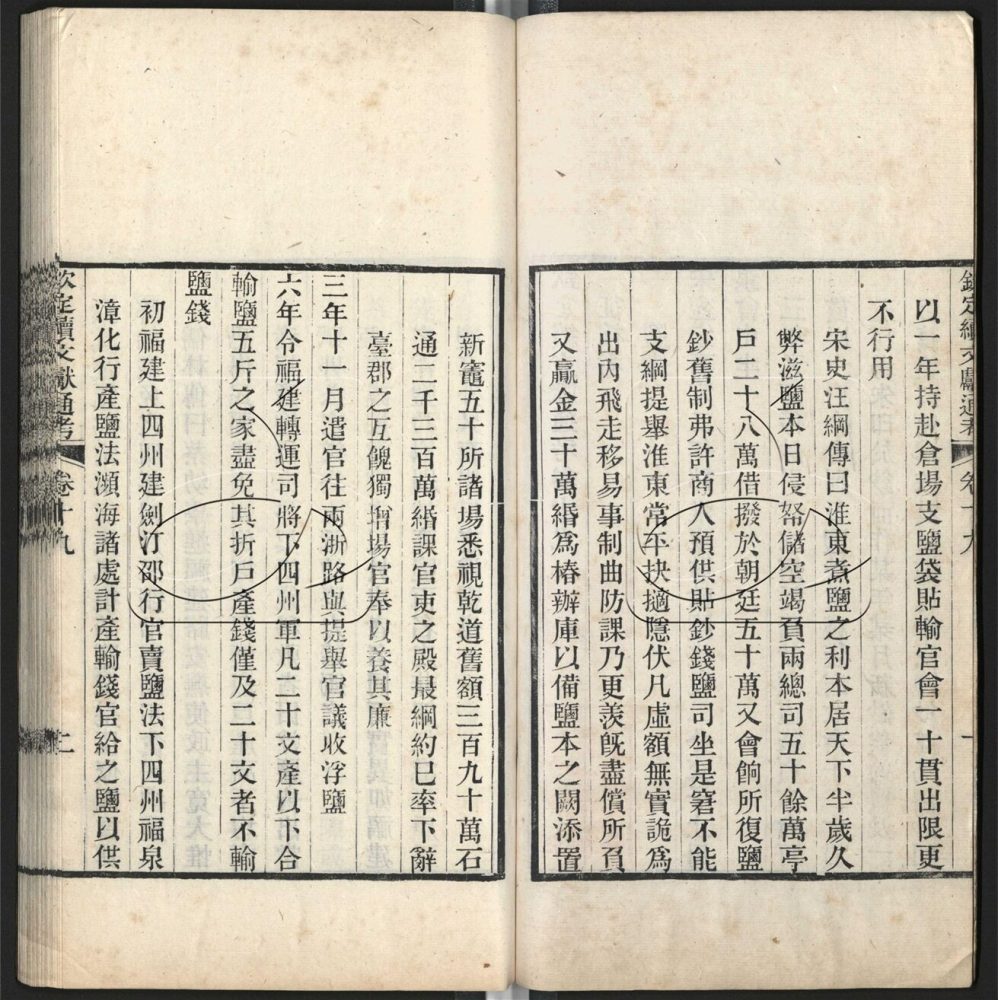 欽定續文獻通考 卷十九 一
以一年持赴倉場支鹽袋貼輸官會一十貫出限更
不行用
宋史汪綱傳曰淮東煮鹽之利本居天下半歲久
弊滋鹽本日侵帑儲空竭負兩總司五十餘萬亭
戶二十八萬借撥於朝廷五十萬又會餉所復鹽
鈔舊制弗許商人預供貼鈔錢鹽司坐是窘不能
支綱提舉淮東常平抉擿隱伏凡虛額無實詭爲
出內飛走移易事制曲防課乃更羨旣盡償所負
又贏金三十萬緡爲椿辦庫以備鹽本之闕添置
新竈五十所諸場悉視乾道舊額三百九十萬石
通二千三百萬緡課官吏之殿最綱約巳率下辭
臺郡之互餽獨增場官奉以養其廉
三年十一月遣官往兩浙路與提舉官議收浮鹽
六年令福建轉運司將下四州軍凡二十文產以下合
輸鹽五斤之家盡免其折戶產錢僅及二十文者不輸
鹽錢
初福建上四州建劍汀邵行官賣鹽法下四州福泉
漳化行產鹽法瀕海諸處計產輸錢官給之鹽以供
欽定續文獻通考 卷十九 二